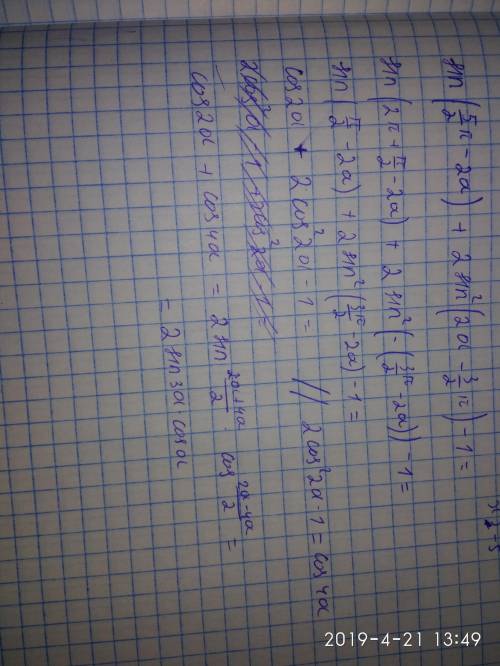 sin(5/2 π - 2a) + 2 sin²(2a - 3/2 π) - 1 =
sin(2π + π/2 - 2a) + 2 sin²(-(3π/2 - 2a)) - 1 =
sin(π/2 - 2a) + 2 sin²(3π/2 - 2a) - 1 =
cos2a + 2cos²2a - 1 = // 2cos²2a - 1 = cos4a
cos2a + cos4a = 2 sin (2a+4a)/2 · cos (2a-4a)/2 =
= 2 sin3a · cosa
2019-4-21 13:49